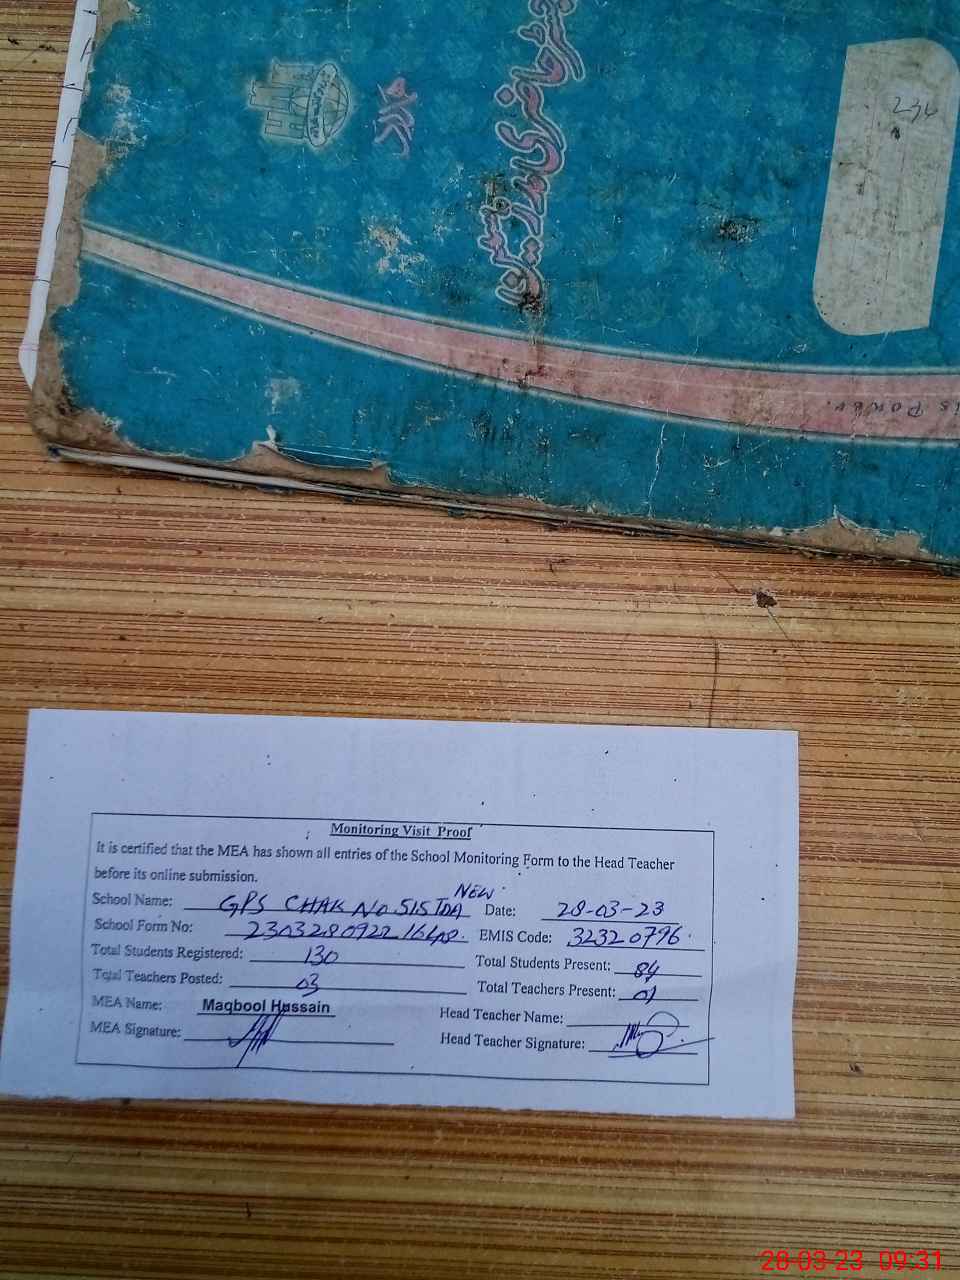 رجسٹر حاضری مدرسین
234
is Power.
Monitoring Visit Proof
It is certified that the MEA has shown all entries of the School Monitoring Form to the Head Teacher
before its online submission.
School Name: GPS CHAK NO 515 TDA NEW Date: 28-03-23
School Form No: EMIS Code: 32320796
Total Students Registered: 130 Total Students Present: 84
Total Teachers Posted: 03 Total Teachers Present: 01
MEA Name: Maqbool Hussain Head Teacher Name:
MEA Signature: Head Teacher Signature:
28-03-23 09:31